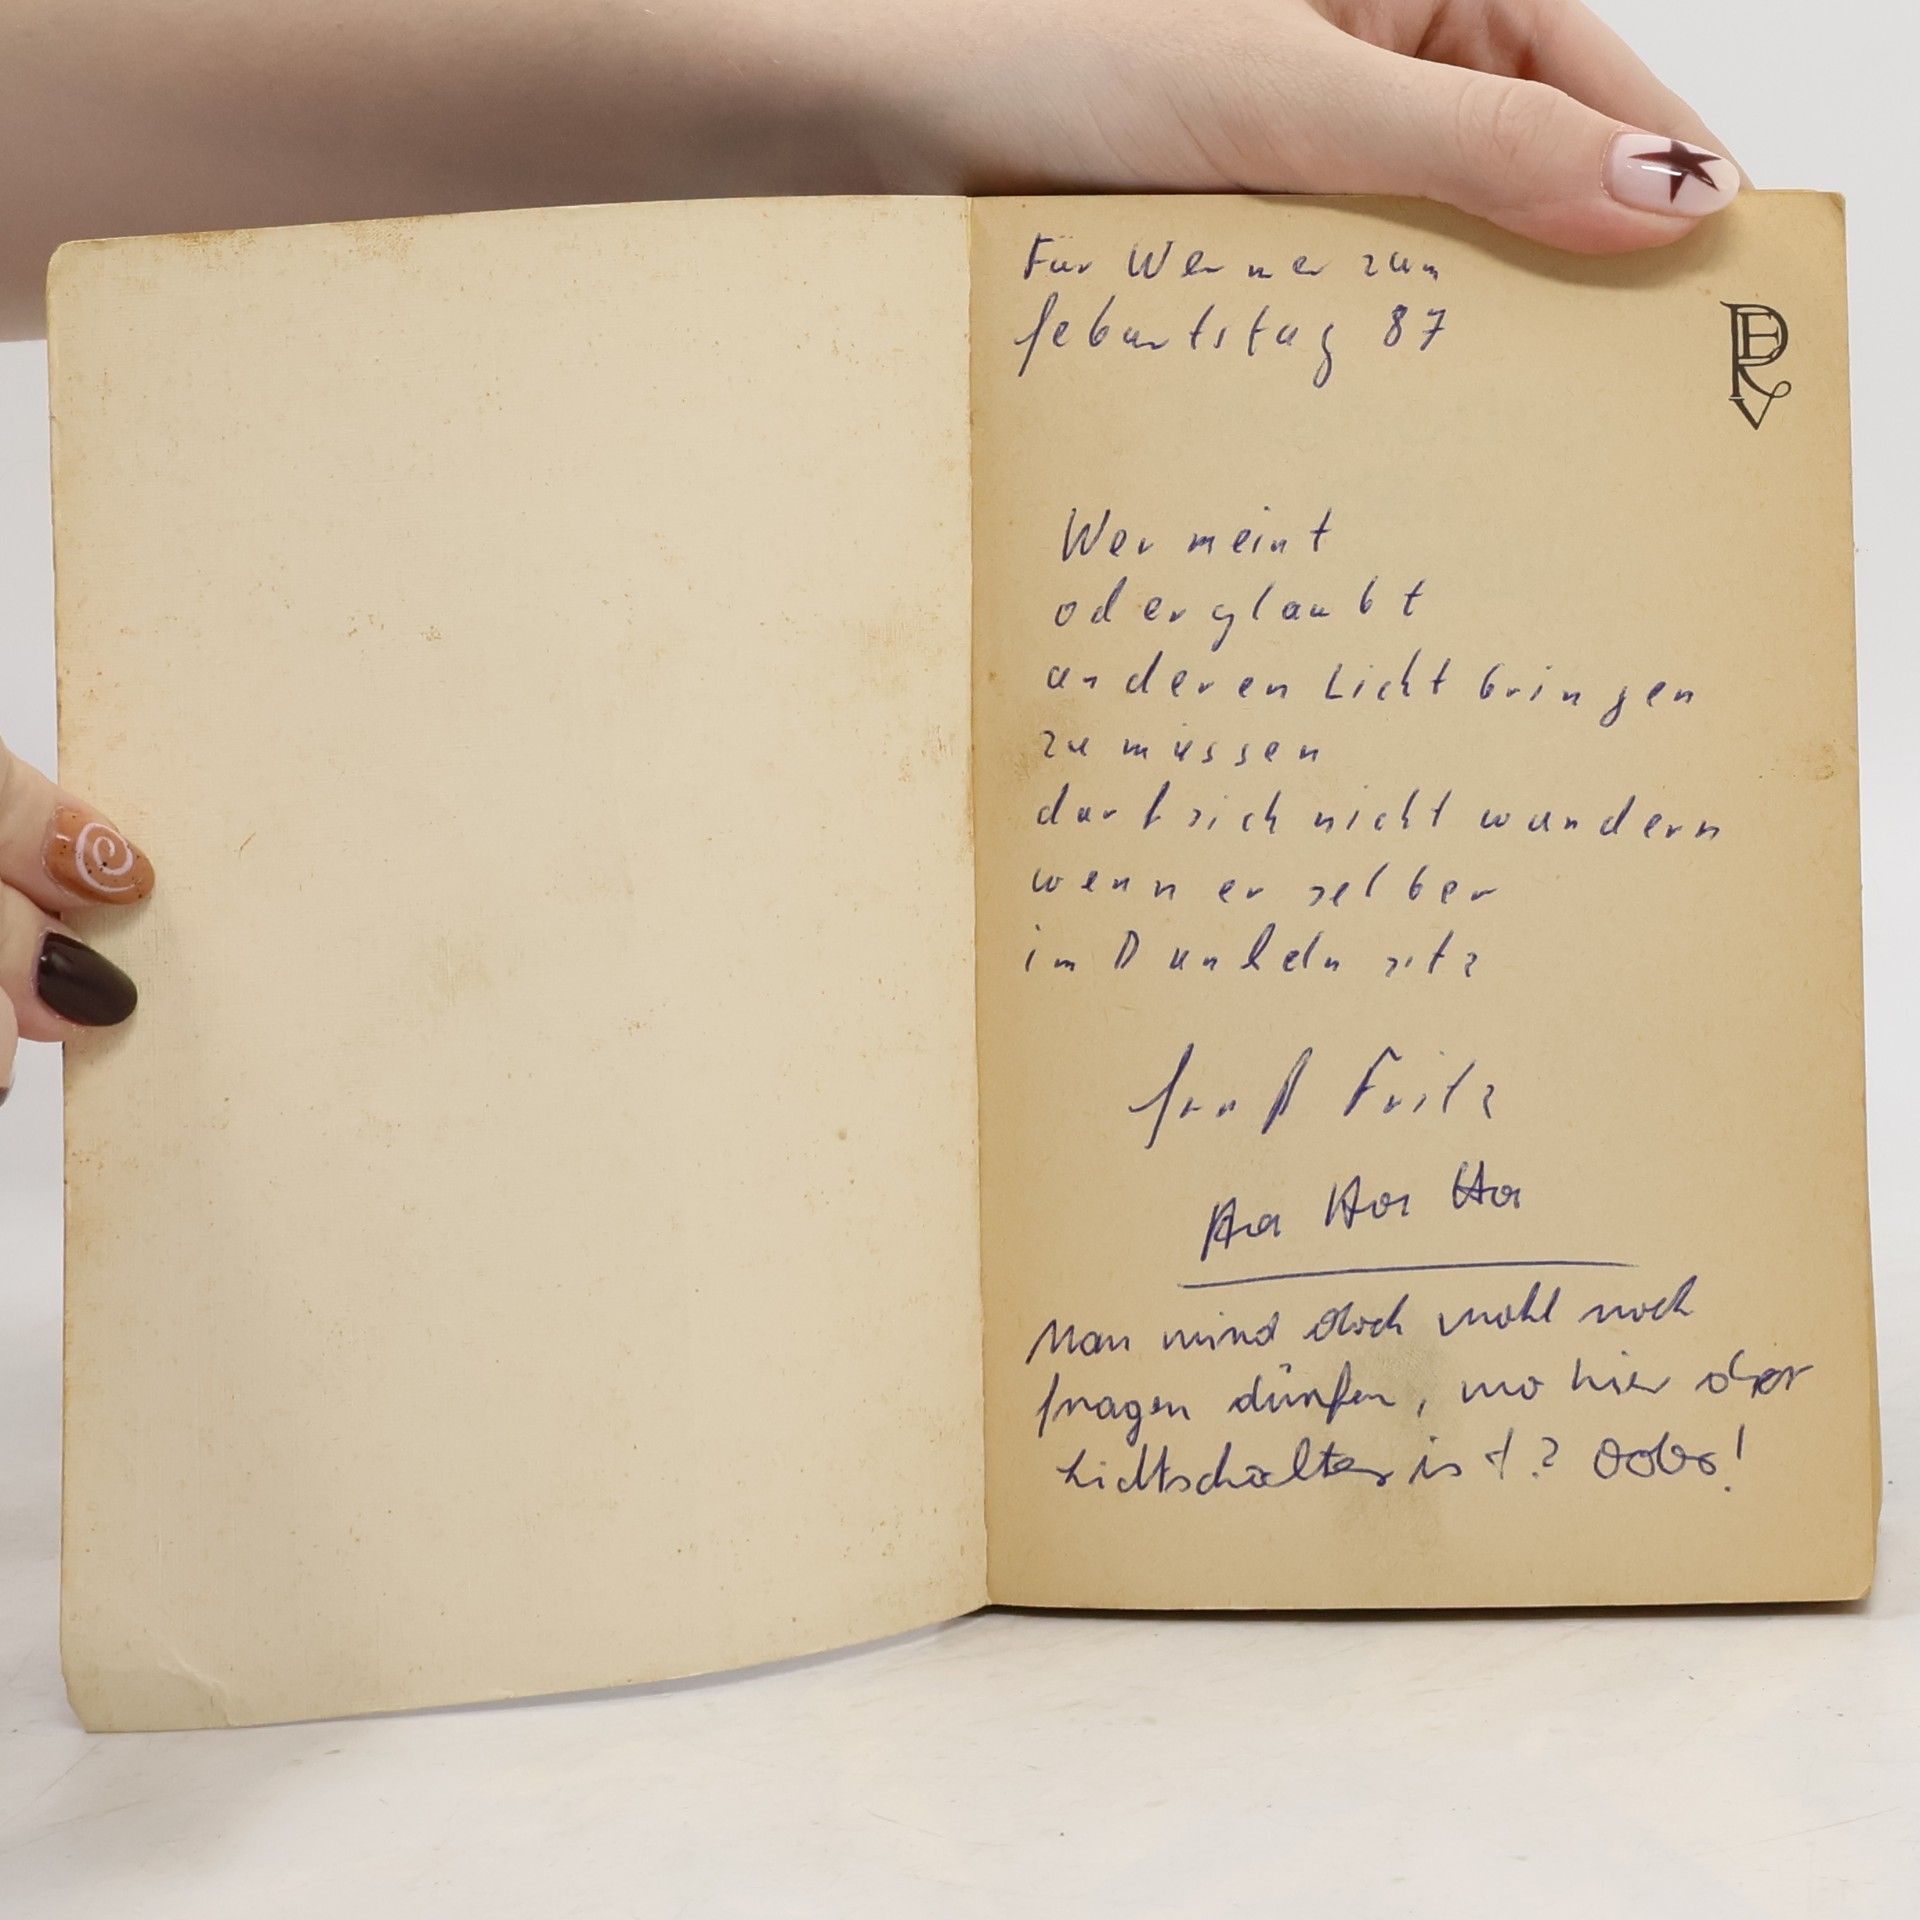 Für Werner zum
Geburtstag 87
Wer meint
oder glaubt
anderen Licht bringen
zu müssen
darf sich nicht wundern
wenn er selber
im Dunkeln sitz
Gruß Fritz
Ha Ha Ha
Man wird doch wohl noch
fragen dürfen, wo hier der
Lichtschalter ist?